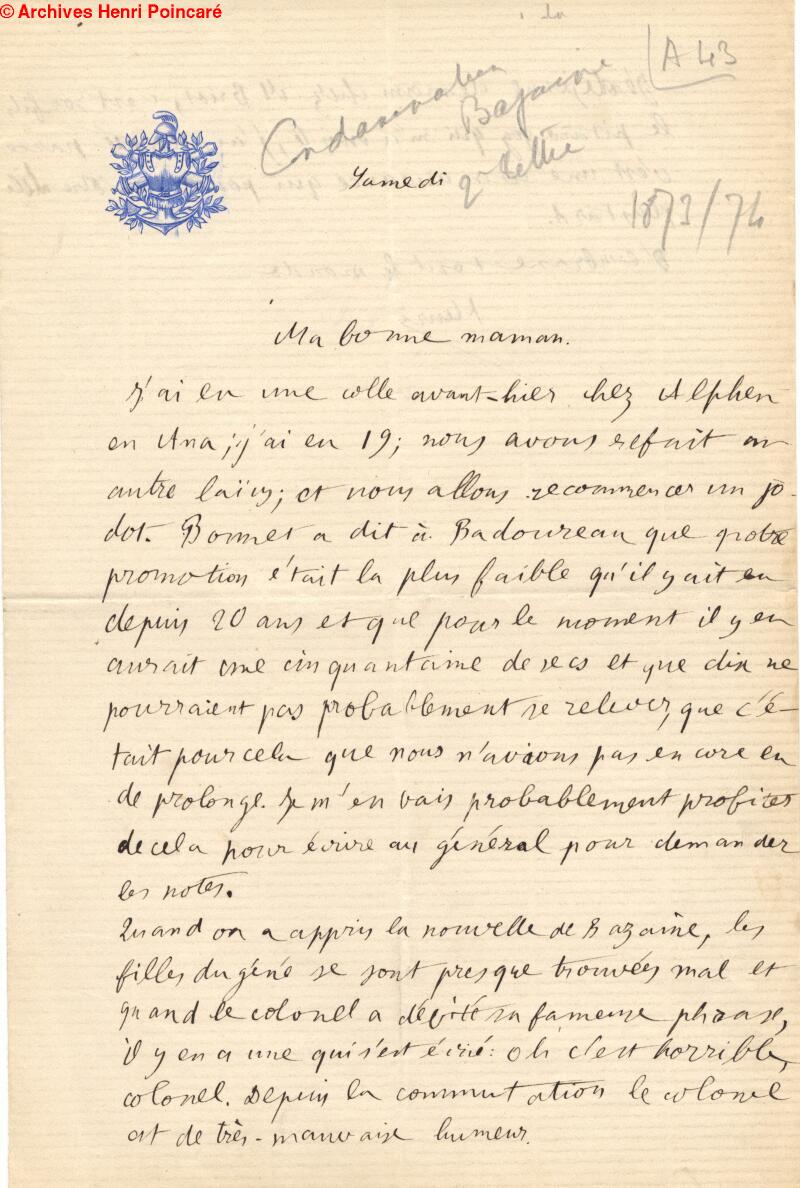 © Archives Henri Poincaré
A 43
Condamnation
Bazaine
Samedi
1873/74
Ma bonne maman.
J'ai eu une colle avant-hier chez Alphen
en Ana; j'ai eu 19; nous avons refait un
autre laïus; et nous allons recommencer un jo-
dot. Bonnet a dit à Badoureau que notre
promotion était la plus faible qu'il y ait eu
depuis 20 ans et que pour le moment il y en
aurait une cinquantaine de secs et que dix ne
pourraient pas probablement se relever, que c'é-
tait pour cela que nous n'avions pas encore eu
de prolonge. Je m'en vais probablement profiter
de cela pour écrire au général pour demander
les notes.
Quand on a appris la nouvelle de Bazaine, les
filles du géné se sont presque trouvées mal et
quand le colonel a débité sa fameuse phrase,
il y en a une qui s'est écrié: oh c'est horrible,
colonel. Depuis la commutation le colonel
est de très-mauvaise humeur.